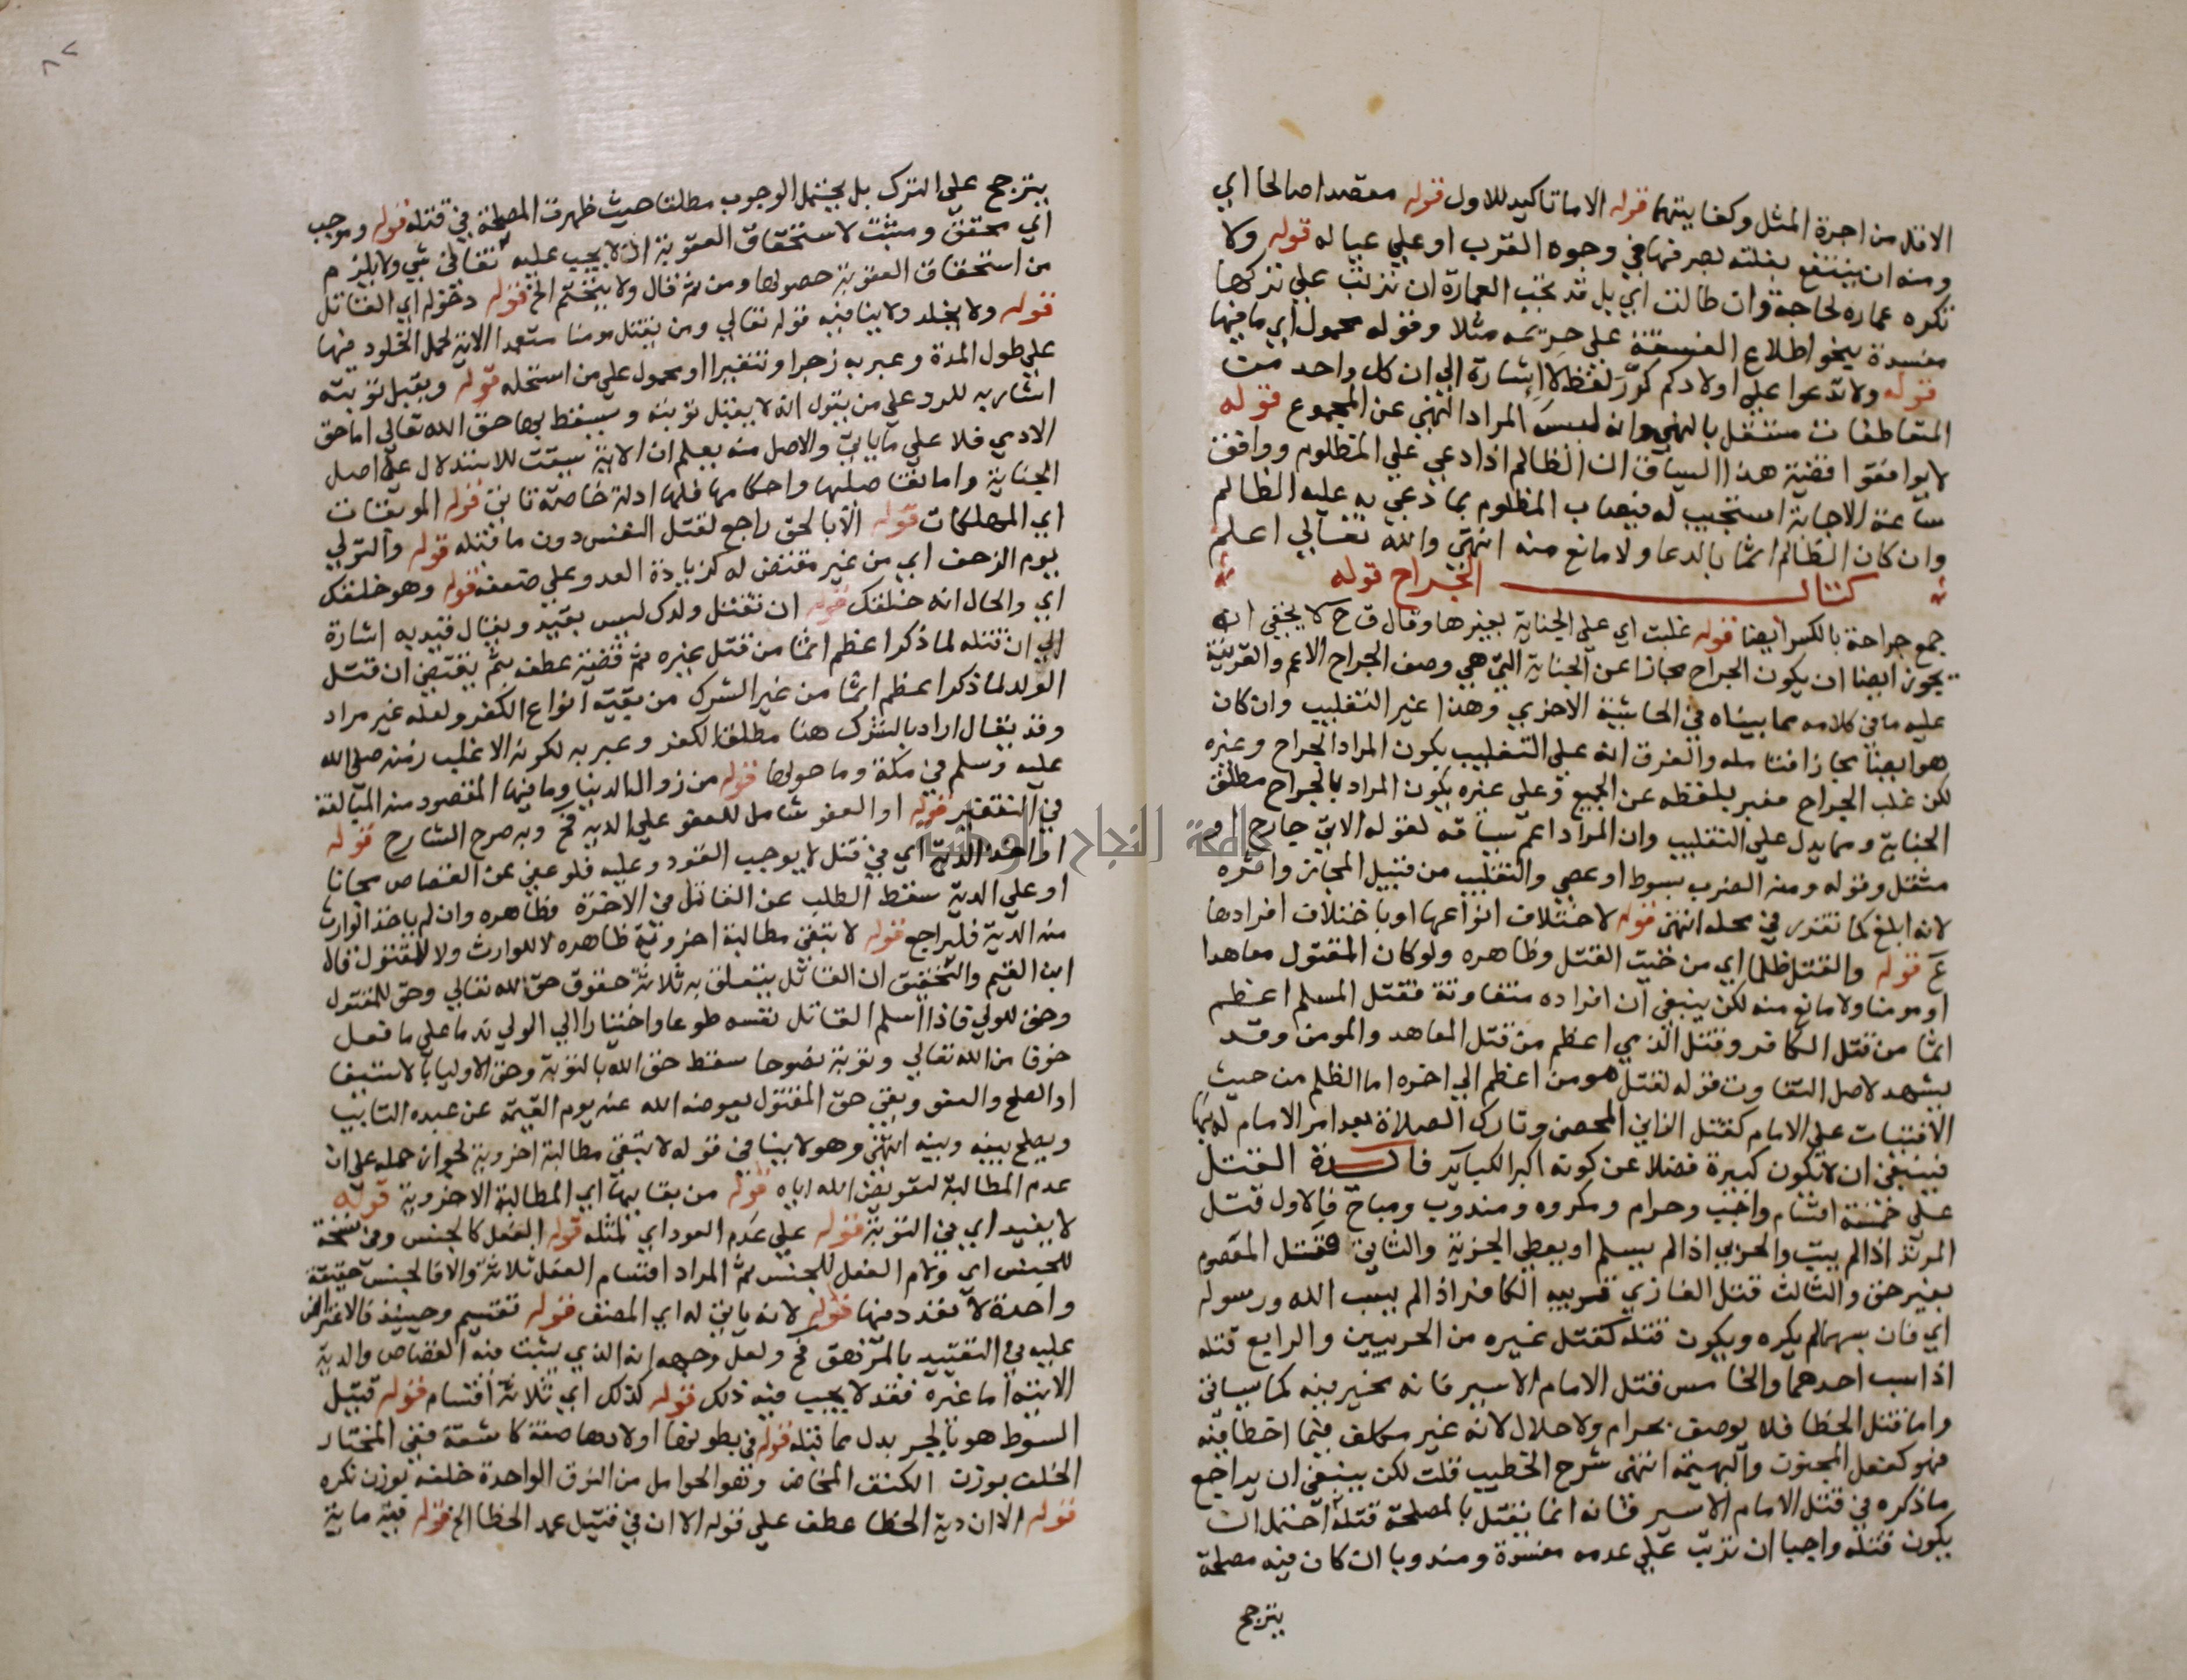 الاقل من اجرة المثل وكفايتهما قوله الاما تاكيد للاول قوله مقصدا صالحا اي
ومنه ان ينتفع بغلته بصرفها في وجوه القرب او على عياله قوله ولا
تكره عماره لحاجة وان طالت اي بل قد تجب العمارة ان ترتب على تركها
مفسدة بنحو اطلاع الفسقة على حريمه مثلا وقوله محمول اي ما فيها
قوله ولا تدعوا على اولادكم كرّر لفظ لا اشارة الى ان كل واحد من
المتعاطفات مستقل بالنهي وانه ليس المراد النهي عن المجموع قوله
لا يوافقوا قضية هذا السياق ان الظالم اذا دعى على المظلوم ووافق
ساعة الاجابة استجيب له فيصاب المظلوم بما دعي به عليه الظالم
وان كان الظالم اثما بالدعا ولا مانع منه انتهى والله تعالى اعلم
كتاب الجراح قوله
جمع جراحة بالكسر ايضا قوله غلبت اي على الجناية بغيرها وقال ق ح لا يخفى انه
يجوز ايضا ان يكون الجراح مجازا عن الجناية التي هي وصف الجراح الاعم والقرينة
عليه ما في كلامه مما بيناه في الحاشية الاخرى وهذا غير التغليب وان كان
هو ايضا مجازا فتامله والفرق انه على التغليب يكون المراد الجراح وغيره
لكن غلب الجراح فعبر بلفظه عن الجميع وعلى غيره يكون المراد بالجراح مطلق
الجناية ومما يدل على التغليب وان المراد اعم سياقه لقوله الاتي جارح او
مثقل وقوله ومنه الضرب بسوط او عصى والتغليب من قبيل المجاز واثره
لانه ابلغ كما تقرر في محله انتهى قوله لاختلاف انواعها او باختلاف افرادها
ع قوله والقتل ظلما اي من حيث القتل وظاهره ولو كان المقتول معاهدا
او مومنا ولا مانع منه لكن ينبغي ان افراده متفاوتة فقتل المسلم اعظم
اثما من قتل الكافر وقتل الذمي اعظم من قتل المعاهد والمومن وقد
يشهد لاصل التفاوت قوله لقتل مومن اعظم الى اخره اما الظلم من حيث
الافتيات على الامام كقتل الزاني المحصن وتارك الصلاة بعد امر الامام له بها
فينبغي ان لا تكون كبيرة فضلا عن كونه اكبر الكباير فائدة القتل
على خمسة اقسام واجب وحرام ومكروه ومندوب ومباح فالاول قتل
المرتد اذا لم يتب والحربي اذا لم يسلم او يعطي الجزية والثاني قتل المعصوم
بغير حق والثالث قتل الغازي قريبه الكافر اذا لم يسب الله ورسوله
اي فان سبهما لم يكره ويكون قتله كقتل غيره من الحربيين والرابع قتله
اذا سب احدهما والخامس قتل الامام الاسير فانه مخير فيه كما سياتي
واما قتل الخطا فلا يوصف بحرام ولا حلال لانه غير مكلف فيما اخطا فيه
فهو كفعل المجنون والبهيمة انتهى شرح الخطيب قلت لكن ينبغي ان يراجع
ما ذكره في قتل الامام الاسير فانه انما يقتل بالمصلحة قتله احتمل ان
يكون قتله واجبا ان ترتب على عدمه مفسدة ومندوبا ان كان فيه مصلحة
يترجح
٨٢
يترجح على الترك بل يحتمل الوجوب مطلقا حيث ظهرت المصلحة في قتله قوله وموجب
اي محقق ومثبت لاستحقاق العقوبة اذ لا يجب عليه تعالى شي ولا يلزم
من استحقاق العقوبة حصولها ومن ثم قال ولا يتحتم الخ قوله دخوله اي القاتل
قوله ولا يخلد ولا ينافيه قوله تعالى ومن يقتل مومنا متعمدا الاية لحمل الخلود فيها
على طول المدة وعبر به زجرا وتنفيرا او محمول على من استحله قوله وتقبل توبته
اشار به للرد على من يقول انه لا يقبل توبته ويسقط بها حق الله تعالى اما حق
الادمي فلا على ما ياتي والاصل منه يعلم ان الاية سيقت للاستدلال على اصل
الجناية واما تفاصيلها واحكامها فلها ادلة خاصة تاتي قوله الموبقات
اي المهلكات قوله الا بالحق راجع لقتل النفس دون ما قبله قوله والتولي
يوم الزحف اي من غير مقتض له كزيادة العدو على ضعفه قوله وهو خلقك
اي والحال انه خلقك قوله ان تقتل ولدك ليس بقيد ويقال قيد به اشارة
الى ان قتله لما ذكر اعظم اثما من قتل غيره ثم قضية عطف ثم يقتضي ان قتل
الولد لما ذكر اعظم اثما من غير الشرك من بقية انواع الكفر ولعله غير مراد
وقد يقال اراد بالشرك هنا مطلق الكفر وعبر به لكونه الاغلب زمنه صلى الله
عليه وسلم في مكة وما حولها قوله من زوال الدنيا وما فيها المقصود منه المبالغة
في التنفير قوله او العفو شامل للعفو على الدية فح وبه صرح الشارح قوله
او اخذ الدية اي في قتل لا يوجب القود وعليه فلو عفي عن القصاص مجانا
او على الدية سقط الطلب عن القاتل في الاخرة وظاهره وان لم ياخذ الوارث
منه الدية فليراجع قوله لا تبقى مطالبة اخروية ظاهره لا للوارث ولا للمقتول قال
ابن القيم والتحقيق ان القاتل يتعلق به ثلاثة حقوق حق لله تعالى وحق للمقتول
وحق للولي فاذا اسلم القاتل نفسه طوعا واختيارا الى الولي ندما على ما فعل
خوفا من الله تعالى وتوبة نصوحا سقط حق الله بالتوبة وحق الاوليا بالاستيفا
او الصلح والعفو وبقي حق المقتول يعوضه الله عنه يوم القيمة عن عبده التايب
ويصلح بينه وبينه انتهى وهو لا ينافي قوله لا تبقى مطالبة اخروية لجواز حمله على ان
عدم المطالبة لتعويض الله اياه قوله من بقايها اي المطالبة الاخروية قوله
لا يفيد اي في التوبة قوله على عدم العود اي لمثله قوله الفعل كالجنس وفي نسخة
للجنس اي ولام الفعل للجنس ثم المراد اقسام الفعل ثلاثة والا فالجنس حقيقة
واحدة لا تعدد فيها قوله لانه ياتي له اي المصنف قوله تقسيم وحينئذ فالاعتراض
عليه في التقييد بالمزهق فح ولعل وجهه انه الذي يثبت فيه القصاص والدية
الاتية اما غيره فقد لا يجب فيه ذلك قوله كذلك اي ثلاثة اقسام قوله قتيل
السوط هو بالجر بدل مما قبله قوله في بطونها اولادها صفة كاشفة ففي المختار
الخلف بوزن الكتف المخاض وهو الحوامل من النوق الواحدة خلفة بوزن نكره
قوله الا ان دية الخطا عطف على قوله الا ان في قتيل عمد الخطا الخ قوله فيه ماية
جامعة النجاح الوطنية